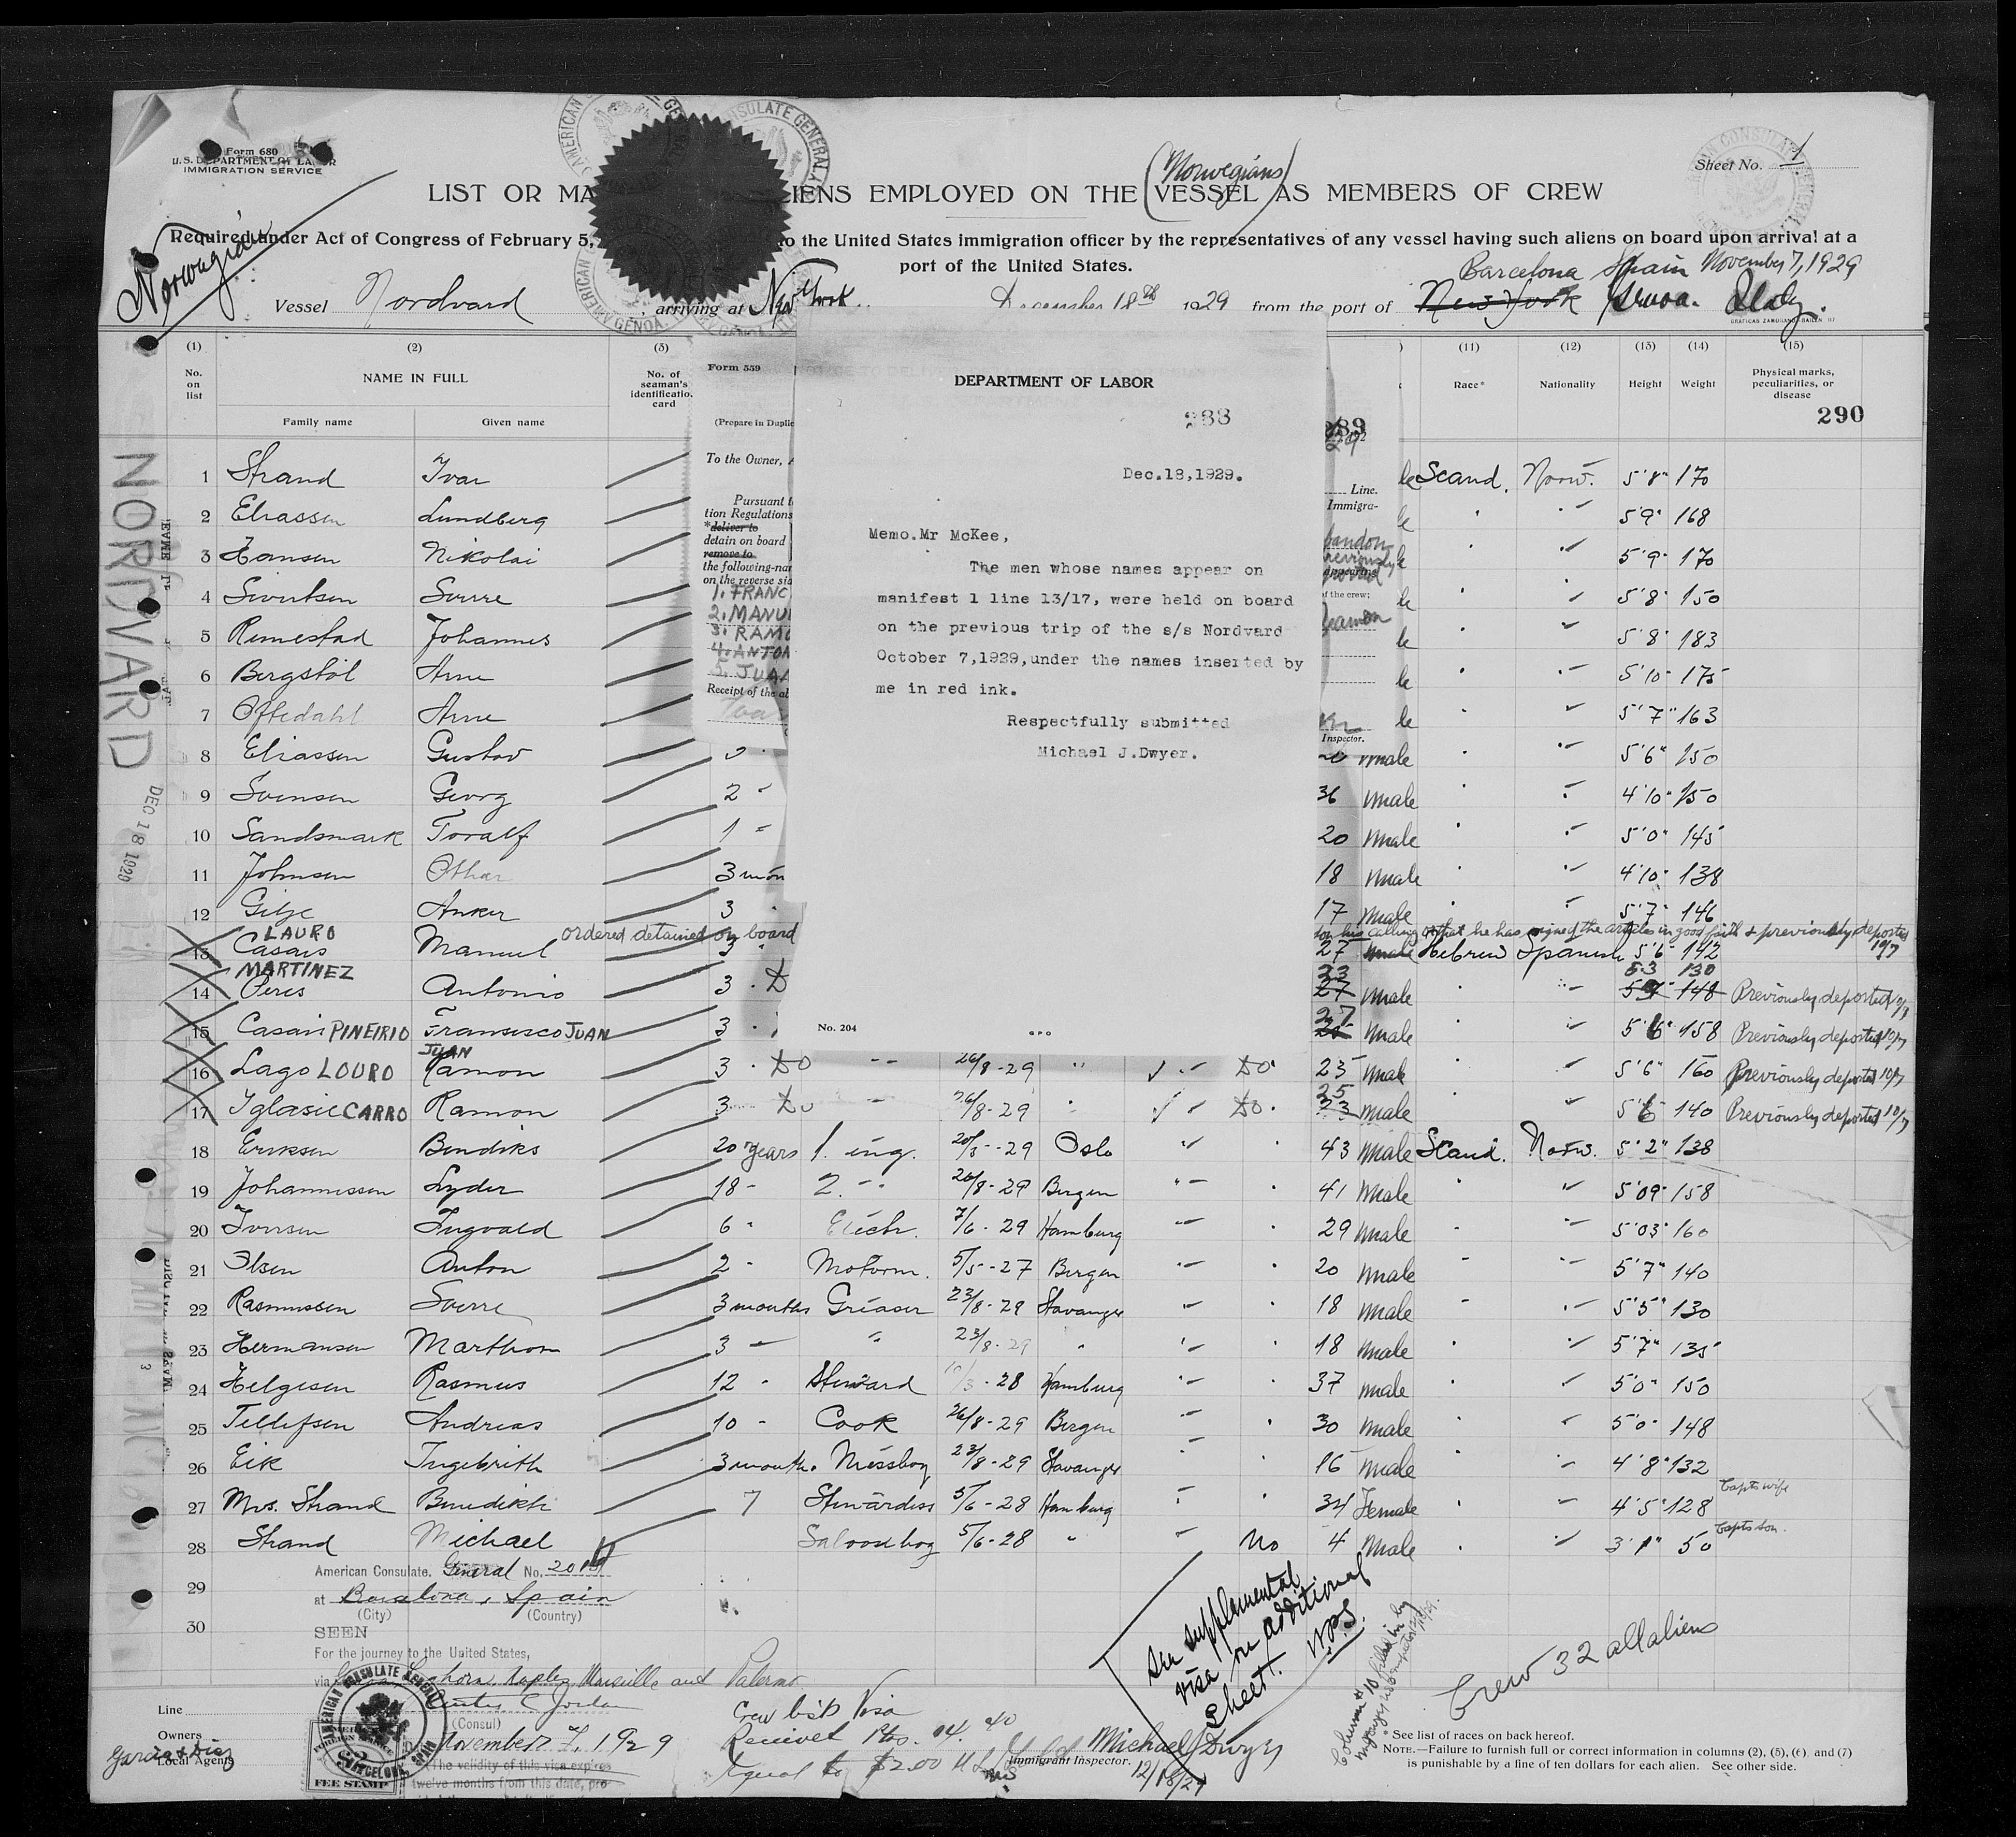 Form 680
U.S. DEPARTMENT OF LABOR
IMMIGRATION SERVICE
Sheet No. 1
(Norwegians)
LIST OR MA IENS EMPLOYED ON THE VESSEL AS MEMBERS OF CREW
Required under Act of Congress of February 5, to the United States immigration officer by the representatives of any vessel having such aliens on board upon arrival at a
port of the United States.
Norwegian
Barcelona Spain November 7, 1929
Vessel Nordvard, arriving at New York December 18th 1929 from the port of New York Genoa. Italy.
(1) (2) (3) (11) (12) (13) (14) (15)
No. on list NAME IN FULL No. of seaman's identification card Race* Nationality Height Weight Physical marks, peculiarities, or disease
Family name Given name
290
NORDVARD
DEC 18 1929
Form 559
(Prepare in Duplic
To the Owner,
Pursuant t
tion Regulations
*deliver to
detain on board
remove to
the following-nam
on the reverse sid
1. FRANC
2. MANU
3. RAMO
4. ANTON
5. JUAN
Receipt of the ab
289
Line.
Immigra-
of the crew;
Inspector.
DEPARTMENT OF LABOR
288
Dec.18,1929.
Memo.Mr McKee,
The men whose names appear on
manifest 1 line 13/17, were held on board
on the previous trip of the s/s Nordvard
October 7,1929,under the names inserted by
me in red ink.
Respectfully submitted
Michael J.Dwyer.
No. 204
GPO
1 Strand Ivar le Scand. Norw. 5'8" 170
2 Eliassen Lundberg le " " 5'9" 168
3 Hansen Nikolai le " " 5'9" 170
4 Sivertsen Sverre le " " 5'8" 150
5 Rimestad Johannes le " " 5'8" 183
6 Bergstöl Arne le " " 5'10" 175
7 Oftedahl Arne le " " 5'7" 163
8 Eliassen Gustav male " " 5'6" 150
9 Svensen Georg 2 " 36 male " " 4'10" 150
10 Sandsmark Toralf 1 " 20 male " " 5'0" 145
11 Johnsen Othar 3 mon 18 male " " 4'10" 138
12 Gilje Anker 3 " 17 male " " 5'7" 146
ordered detained on board
for his calling or that he has signed the articles in good faith & previously deported 10/7
13 LAURO Casais Manuel 3 " 27 male Hebrew Spanish 5'6" 142
14 MARTINEZ Peres Antonio 3 " Do 23 27 male " " 5 3 130 148 Previously deported 10/7
15 Casais PINEIRIO Fransisco JUAN 3 " 27 male " " 5'6" 158 Previously deported 10/7
16 Lago LOURO JUAN Ramon 3 " Do " 26/8-29 " Do. 25 male " " 5'6" 160 Previously deported 10/7
17 Iglasie CARRO Ramon 3 " Do " 26/8-29 " Do. 25 23 male " " 5'6" 140 Previously deported 10/7
18 Eriksen Bendiks 20 years 1. ing. 20/5-29 Oslo " " 43 male Scand. Norw. 5'2" 138
19 Johannessen Lyder 18 " 2. " 26/8-29 Bergen " " 41 male " " 5'09" 158
20 Iversen Ingvald 6 " 7/6-29 Hamburg " " 29 male " " 5'03" 160
21 Olsen Anton 2 " Motorm. 5/5-27 Bergen " " 20 male " " 5'7" 140
22 Rasmussen Sverre 3 months Greaser 23/8-29 Stavanger " " 18 male " " 5'5" 130
23 Hermansen Marthon 3 " " 23/8-29 " " " 18 male " " 5'7" 135
24 Helgesen Rasmus 12 " Steward 10/3-28 Hamburg " " 37 male " " 5'0" 150
25 Tellefsen Andreas 10 " Cook 26/8-29 Bergen " " 30 male " " 5'0" 148
26 Eik Ingebrith 3 month. Messboy 23/8-29 Stavanger " " 16 male " " 4'8" 132
27 Mrs. Strand Benedikte 7 Stewardess 5/6-28 Hamburg " " 34 Female " " 4'5" 128 Capts wife
28 Strand Michael Saloonboy 5/6-28 " " No 4 male " " 3'1" 50 Capts son.
29
30
American Consulate. General No.
at Barcelona, Spain
(City) (Country)
SEEN
For the journey to the United States,
via Genoa, Leghorn, Naples, Marseille and Palermo.
Curtis C. Jordan
(Consul)
November 7, 1929
(The validity of this visa expires
twelve months from this date, pro-
AMERICAN CONSULATE GENERAL BARCELONA, SPAIN
AMERICAN FOREIGN SERVICE
$2
FEE STAMP
Crew list Visa
Received Pts. 14.40
Equal to $2.00 U.S.
See supplemental
visa on additional
sheet. W.P.S.
Crew 32 all aliens
Line
Owners
Local Agents
Garcia & Diaz
Michael J Dwyer
Immigrant Inspector.
12/18/29
* See list of races on back hereof.
NOTE.—Failure to furnish full or correct information in columns (2), (5), (6), and (7)
is punishable by a fine of ten dollars for each alien. See other side.